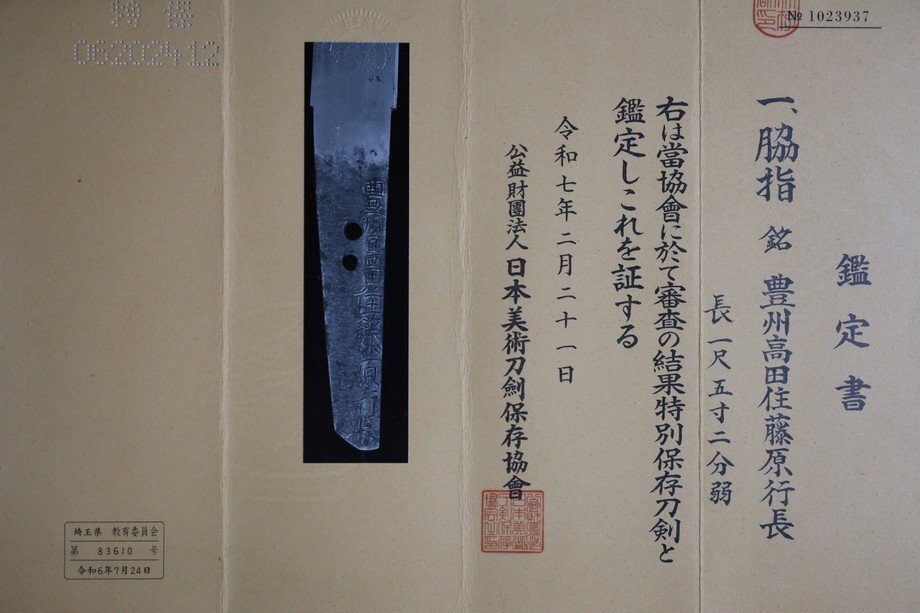 № 1023937
鑑定書
一、脇指 銘 豊州高田住藤原行長
長一尺五寸二分弱
右は當協會に於て審査の結果特別保存刀剣と
鑑定しこれを証する
令和七年二月二十一日
公益財團法人 日本美術刀劍保存協會
06202412
埼玉県 教育委員会
第 83610 号
令和6年7月24日